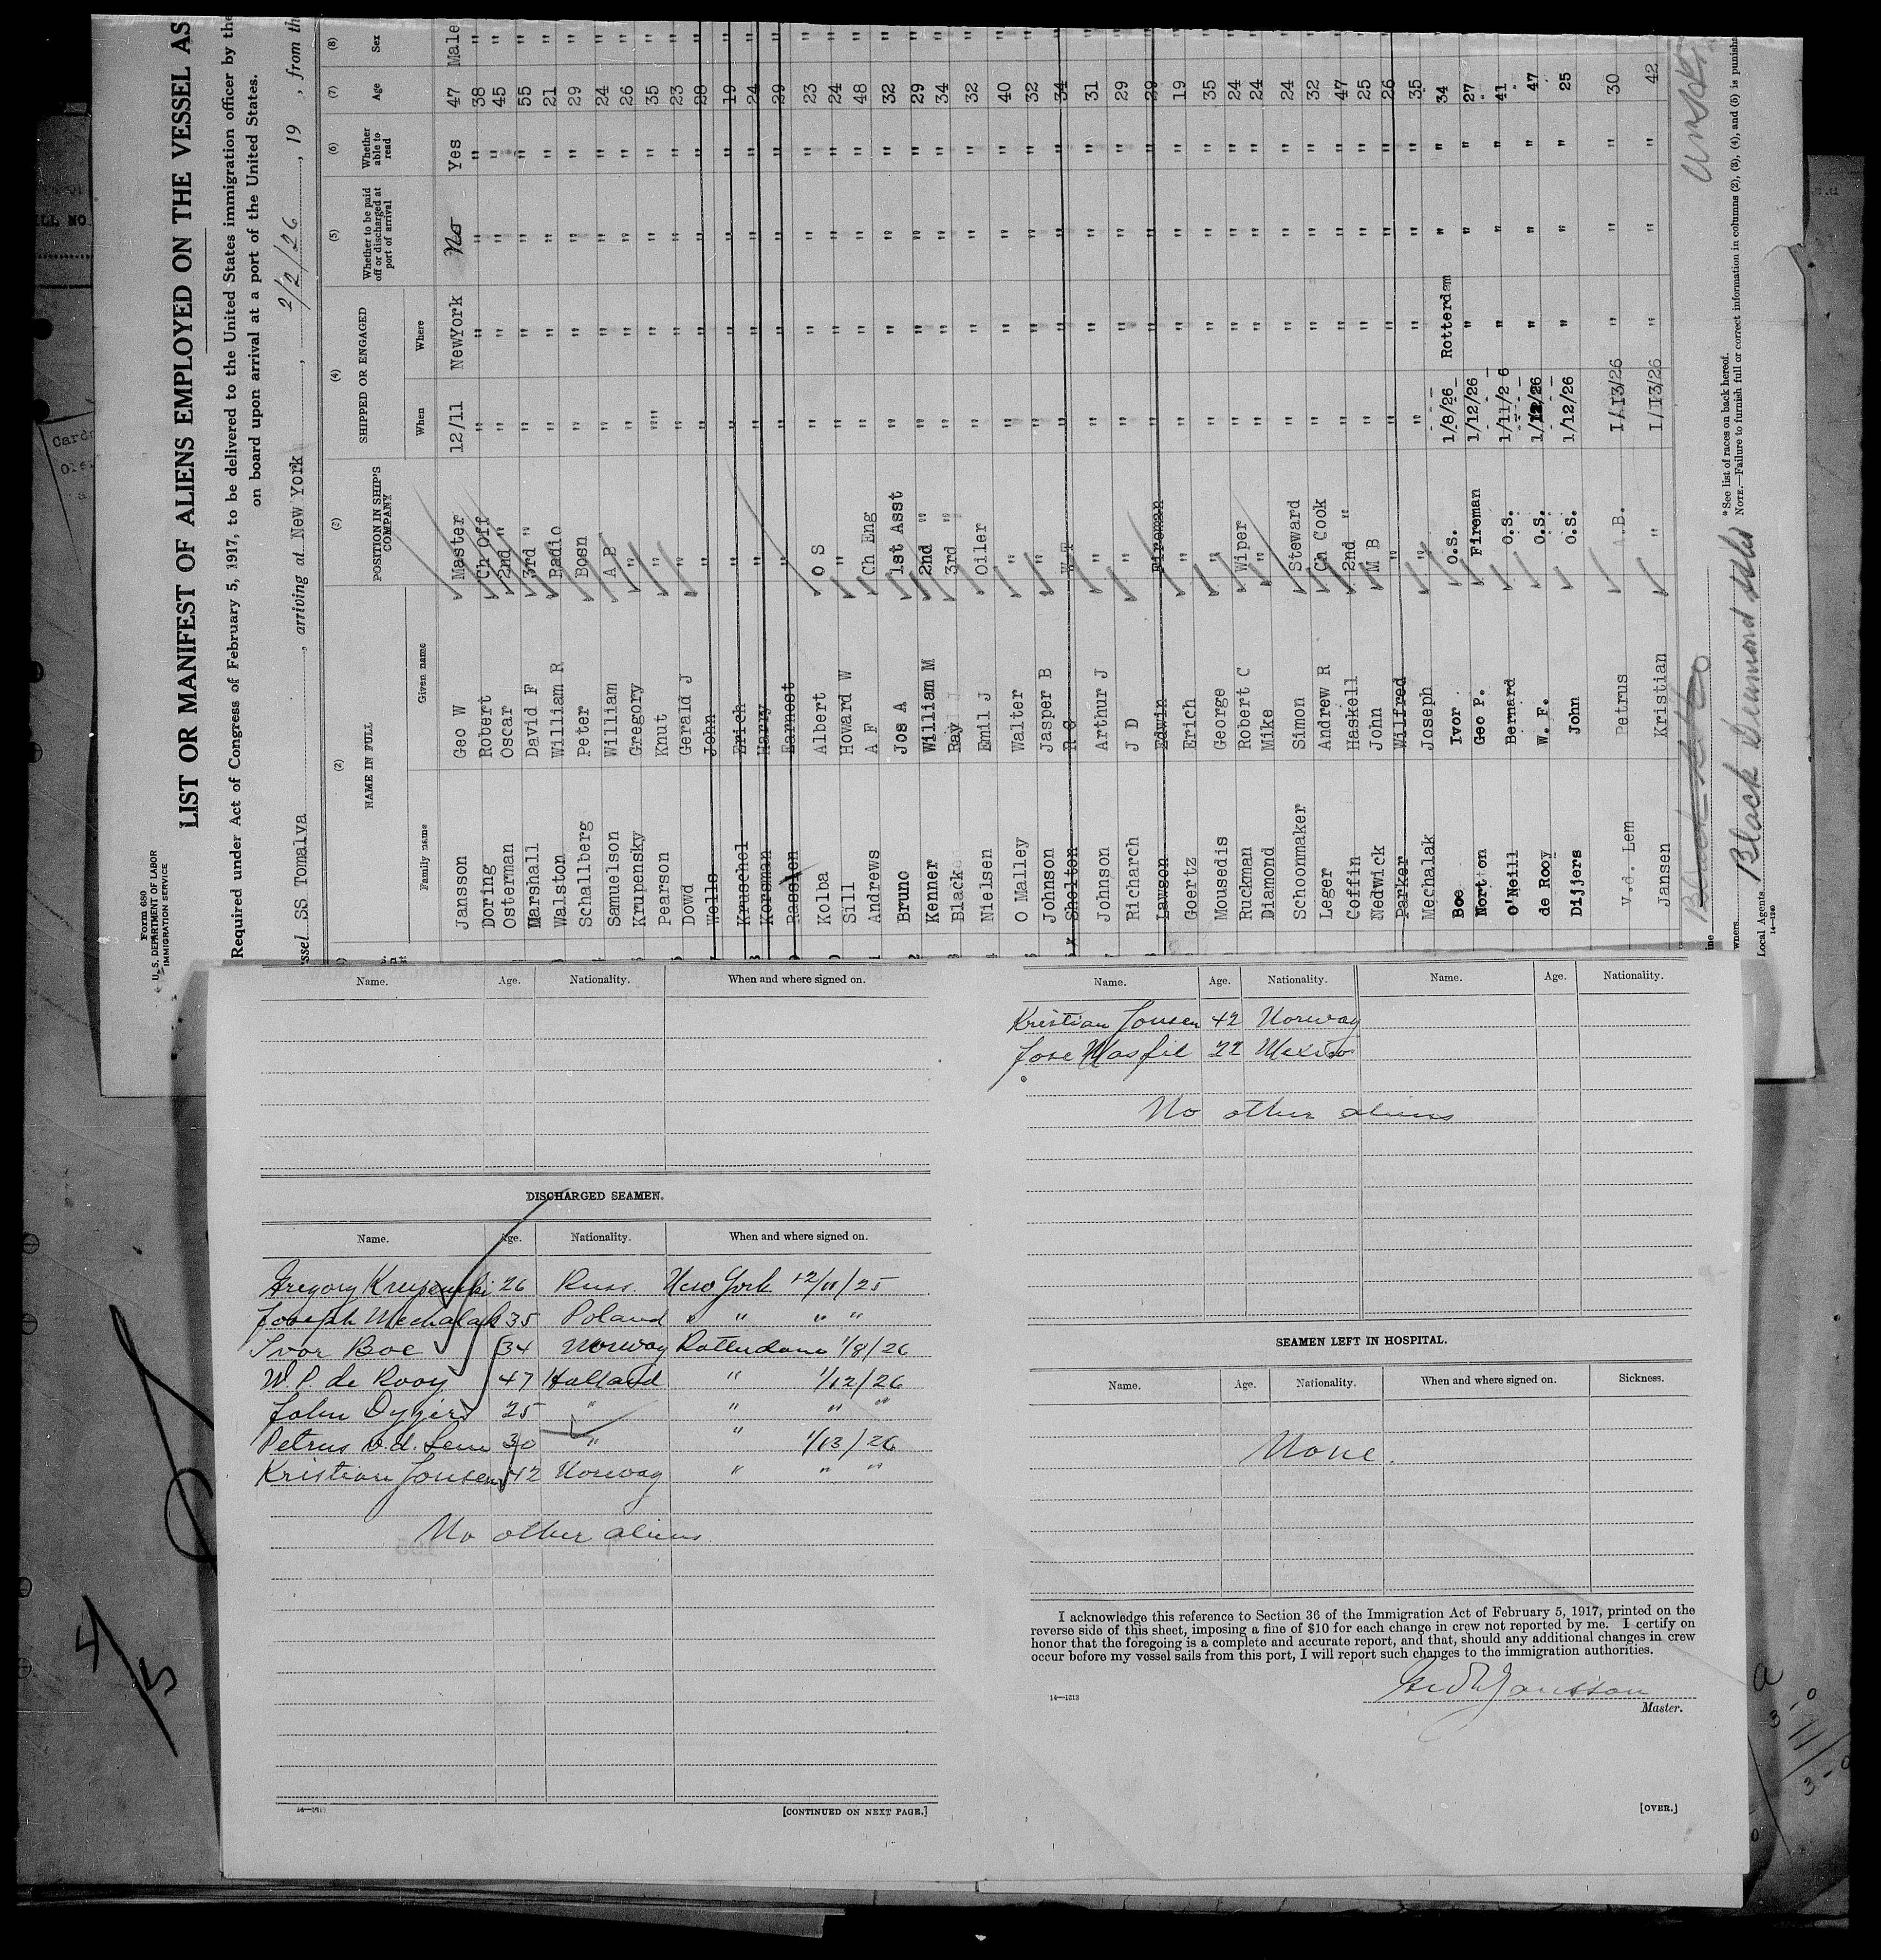 Form 689
U. S. DEPARTMENT OF LABOR
IMMIGRATION SERVICE
LIST OR MANIFEST OF ALIENS EMPLOYED ON THE VESSEL AS
Required under Act of Congress of February 5, 1917, to be delivered to the United States immigration officer by the
on board upon arrival at a port of the United States.
ssel SS Tomalva, arriving at New York, 2/2/26, 19, from th
(2) (3) (4) (5) (6) (7) (8)
NAME IN FULL POSITION IN SHIP'S COMPANY SHIPPED OR ENGAGED Whether to be paid off or discharged at port of arrival Whether able to read Age Sex
Family name Given name When Where
Jansson Geo W Master 12/11 NewYork No Yes 47 Male
Doring Robert Ch Off " " " " 38 "
Osterman Oscar 2nd " " " " " 45 "
Marshall David F 3rd " " " " " 55 "
Walston William R Radio " " " " 21 "
Schallberg Peter Bosn " " " " 29 "
Samuelson William A B " " " " 24 "
Krupensky Gregory " " " " " 26 "
Pearson Knut " "" " " " 35 "
Dowd Gerald J " " " " " 23 "
Wells John " " " " " 28 "
Kruschel Erich " " " " " 19 "
Korsman Harry " " " " " 24 "
Earnest " " " " " 29 "
Kolba Albert O S " " " " 23 "
Sill Howard W " " " " " 24 "
Andrews A F Ch Eng " " " " 48 "
Bruno Jos A 1st Asst " " " " 32 "
Kenner William M 2nd " " " " " 29 "
Black Ray J 3rd " " " " " 34 "
Nielsen Emil J Oiler " " " " 32 "
O Malley Walter " " " " " 40 "
Johnson Jasper B " " " " " 32 "
x Shelton R G W T " " " " 34 "
Johnson Arthur J " " " " " 31 "
Richarch J D " " " " " 29 "
Lawson Edwin Fireman " " " " 29 "
Goertz Erich " " " " " 19 "
Mousedis George " " " " " 35 "
Ruckman Robert C Wiper " " " " 24 "
Diamond Mike " " " " " 24 "
Schoonmaker Simon Steward " " " " 24 "
Leger Andrew R Ch Cook " " " " 32 "
Coffin Haskell 2nd " " " " " 47 "
Nedwick John M B " " " " 25 "
Parker Wilfred " " " " " 26 "
Mechalak Joseph " " " " " 35 "
Boe Ivor. O.S. 1/8/26 Rotterdam " " 34
Norton Geo P. Fireman 1/12/26 " " " 27
O'Neill Bernard O.S. 1/11/26 " " " 41
de Rooy W. F. O.S. 1/12/26 " " " 47
Dijjers John O.S. 1/12/26 " " " 25
V.d. Lem Petrus A.B. 1/13/26 " " " 30
Jansen Kristian " 1/13/26 " " " 42
wners
Local Agents Black Diamond
14—1240
*See list of races on back hereof.
NOTE.—Failure to furnish full or correct information in columns (2), (3), (4), and (5) is punisha
Name. Age. Nationality. When and where signed on.
DISCHARGED SEAMEN.
Name. Age. Nationality. When and where signed on.
Gregory Krupenski 26 Russ. New York 12/11/25
Joseph Mechalak 35 Poland " " " "
Ivor Boe 34 Norway Rotterdam 1/8/26
W P de Rooy 47 Holland " 1/12/26
John Dyjjers 25 " " " "
Petrus v.d. Lem 30 " " 1/13/26
Kristian Jonsen 42 Norway " " "
No other aliens.
[CONTINUED ON NEXT PAGE.]
Name. Age. Nationality. Name. Age. Nationality.
Kristian Jonsen 42 Norway
Jose Masfil 22 Mexico
No other aliens
SEAMEN LEFT IN HOSPITAL.
Name. Age. Nationality. When and where signed on. Sickness.
None.
I acknowledge this reference to Section 36 of the Immigration Act of February 5, 1917, printed on the
reverse side of this sheet, imposing a fine of $10 for each change in crew not reported by me. I certify on
honor that the foregoing is a complete and accurate report, and that, should any additional changes in crew
occur before my vessel sails from this port, I will report such changes to the immigration authorities.
14—1313
Geo W Jansson
Master.
[OVER.]
4/5